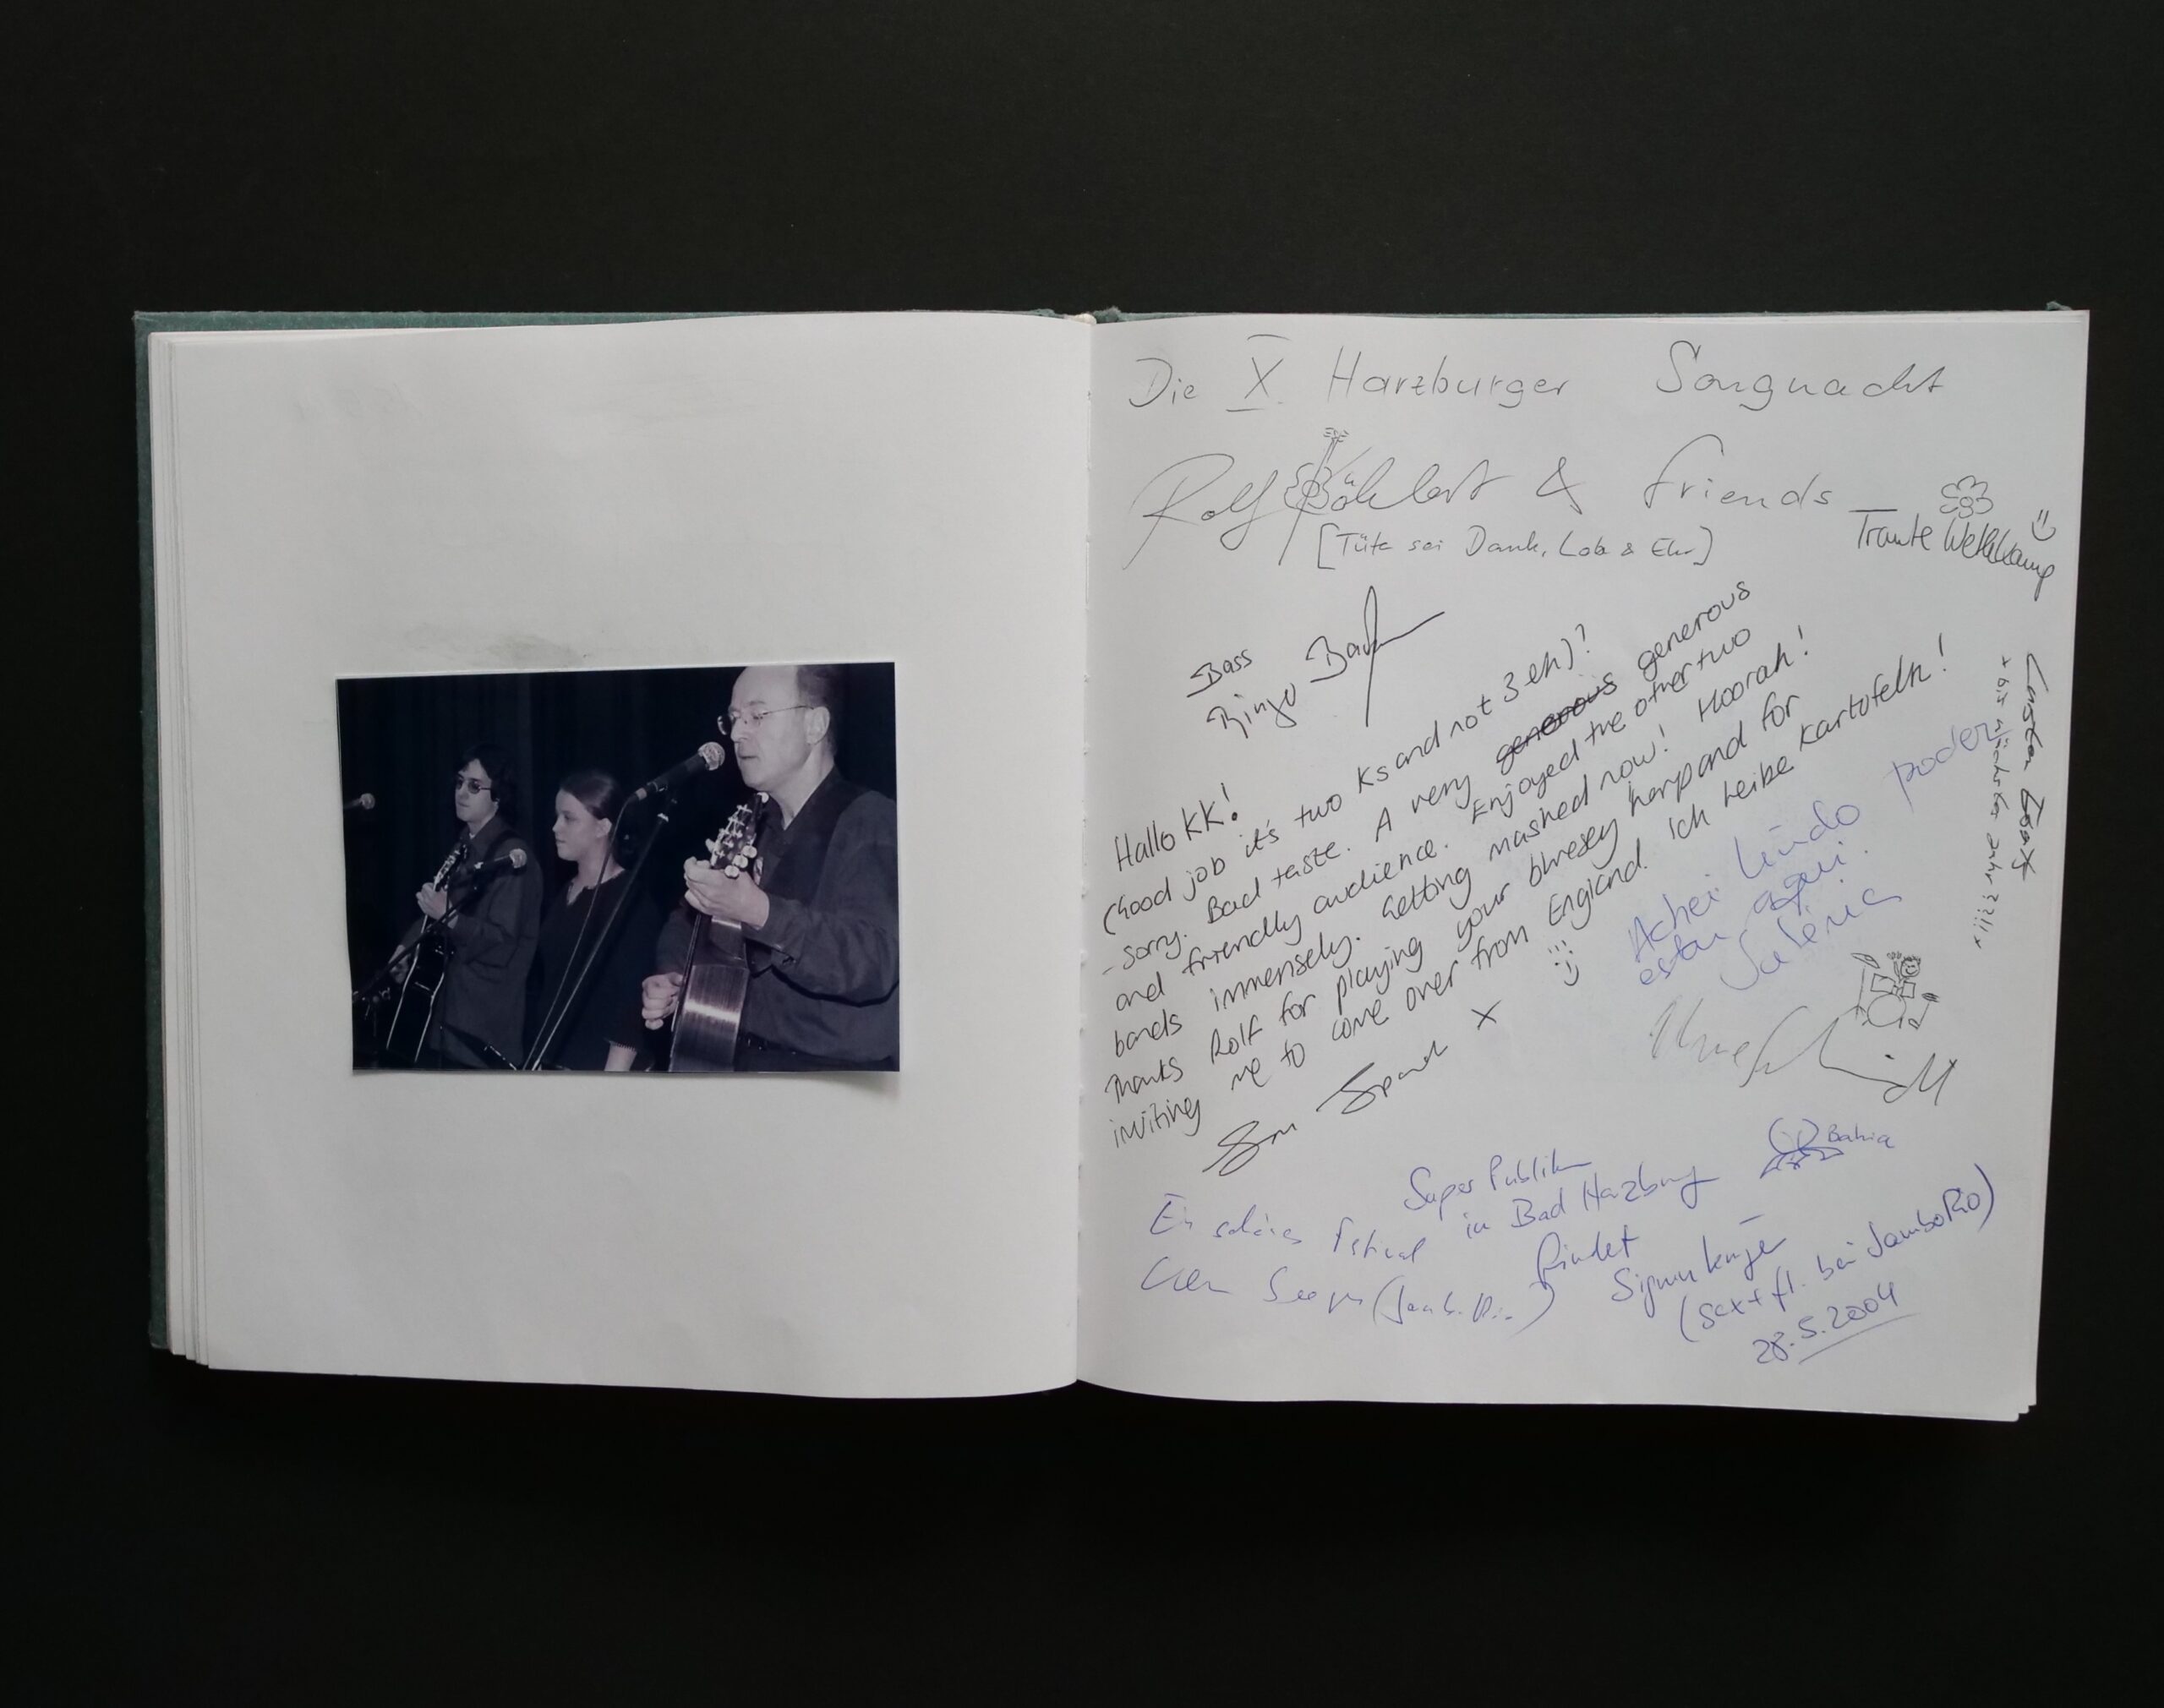 Die X. Harzburger Songnacht
Rolf & friends
[Tüte sei Dank, Lob & Ehr]
Traute
Bass
Ringo
Hallo KK!
(Good job it's two Ks and not 3 eh)?
- sorry. Bad taste. A very generous generous
and friendly audience. Enjoyed the other two
bands immensely. Getting mashed now! Hoorah!
Thanks Rolf for playing your bluesey harp and for
inviting me to come over from England. Ich leibe Kartofeln!
X
Achei lindo poder
estar aqui.
Valéria
Bahia
Super Publikum
in Bad Harzburg
findet
(Sax + fl. bei JamboRio)
28.5.2004
Ein schönes Festival